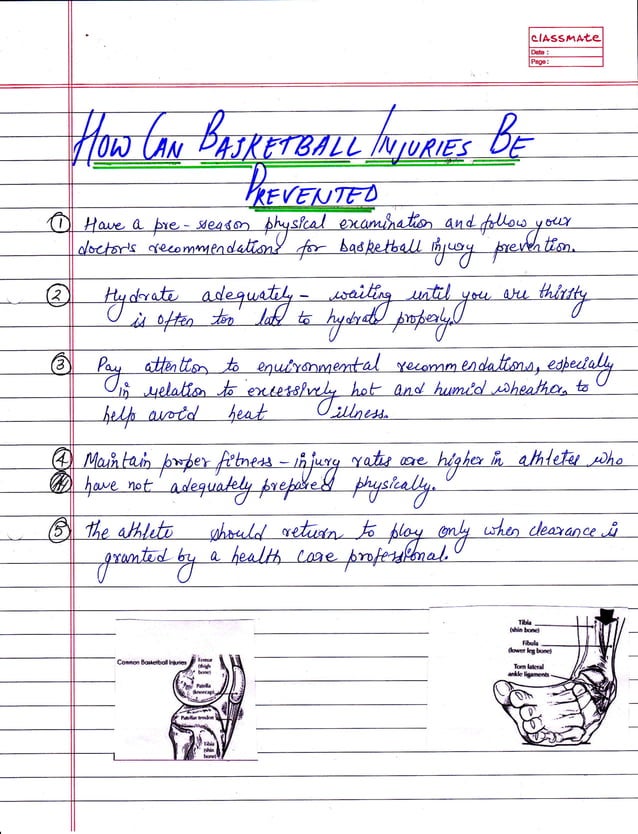 classmate
Date :
Page :
HOW CAN BASKETBALL INJURIES BE
PREVENTED
① Have a pre-season physical examination and follow your
doctor's recommendations for basketball injury prevention.
② Hydrate adequately – waiting until you are thirsty
is often too late to hydrate properly.
③ Pay attention to environmental recommendations, especially
in relation to excessively hot and humid wheather, to
help avoid heat illness.
④ Maintain proper fitness – injury rates are higher in athletes who
have not adequately prepared physically.
⑤ The athlete should return to play only when clearance is
granted by a health care professional.
Common Basketball Injuries
Femur
(thigh
bone)
Patella
(kneecap)
Patellar tendon
Tibia
(shin
bone)
Tibia
(shin bone)
Fibula
(lower leg bone)
Torn lateral
ankle ligaments